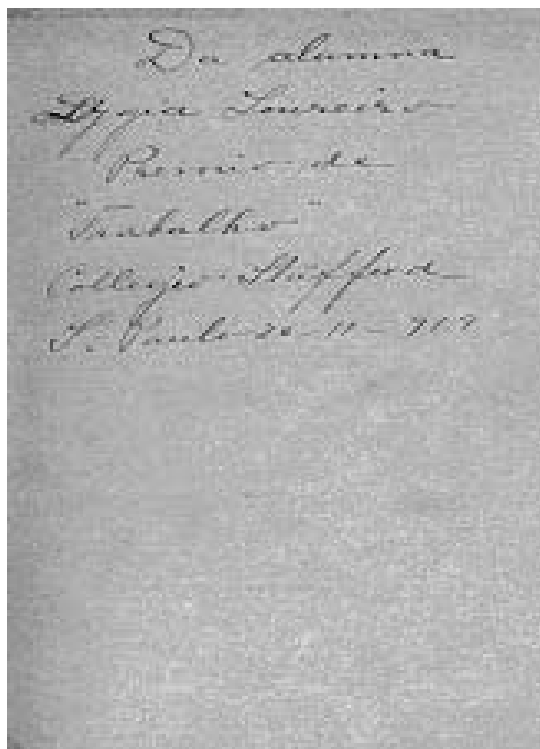 Da alumna
Lygia Loureiro
Premio de
"Trabalho"
Collegio Stafford
S. Paulo 30-11-919